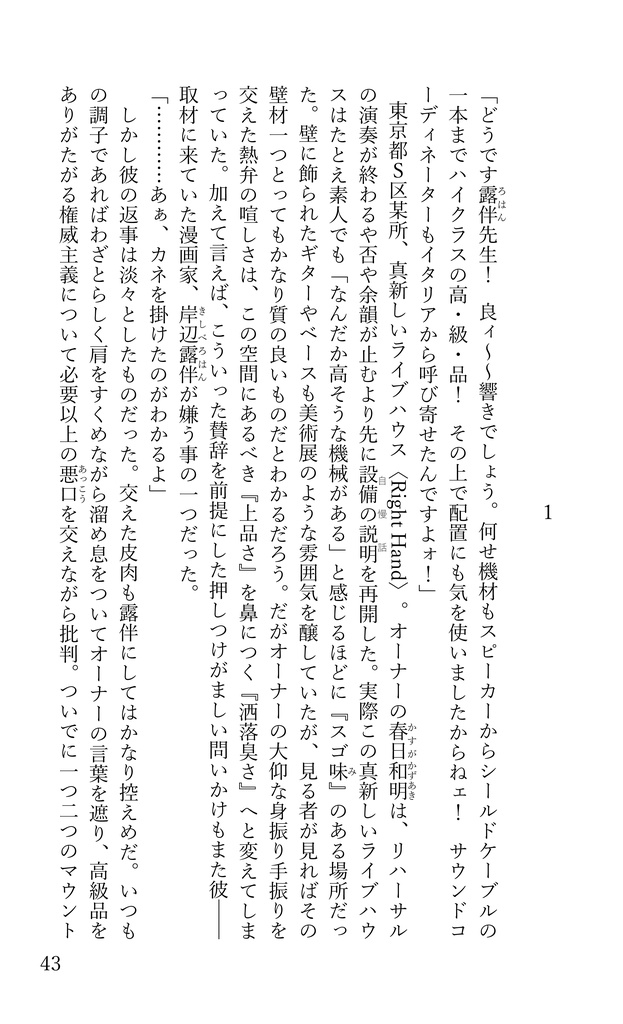 1
「どうです露伴先生！　良ィ～～響きでしょう。何せ機材もスピーカーからシールドケーブルの
一本までハイクラスの高・級・品！　その上で配置にも気を使いましたからねェ！　サウンドコ
ーディネーターもイタリアから呼び寄せたんですよォ！」
　東京都Ｓ区某所、真新しいライブハウス〈Right Hand〉。オーナーの春日和明は、リハーサル
の演奏が終わるや否や余韻が止むより先に設備の説明を再開した。実際この真新しいライブハウ
スはたとえ素人でも「なんだか高そうな機械がある」と感じるほどに『スゴ味』のある場所だっ
た。壁に飾られたギターやベースも美術展のような雰囲気を醸していたが、見る者が見ればその
壁材一つとってもかなり質の良いものだとわかるだろう。だがオーナーの大仰な身振り手振りを
交えた熱弁の喧しさは、この空間にあるべき『上品さ』を鼻につく『洒落臭さ』へと変えてしま
っていた。加えて言えば、こういった賛辞を前提にした押しつけがましい問いかけもまた彼――
取材に来ていた漫画家、岸辺露伴が嫌う事の一つだった。
「…………あぁ、カネを掛けたのがわかるよ」
　しかし彼の返事は淡々としたものだった。交えた皮肉も露伴にしてはかなり控えめだ。いつも
の調子であればわざとらしく肩をすくめながら溜め息をついてオーナーの言葉を遮り、高級品を
ありがたがる権威主義について必要以上の悪口を交えながら批判。ついでに一つ二つのマウント
43